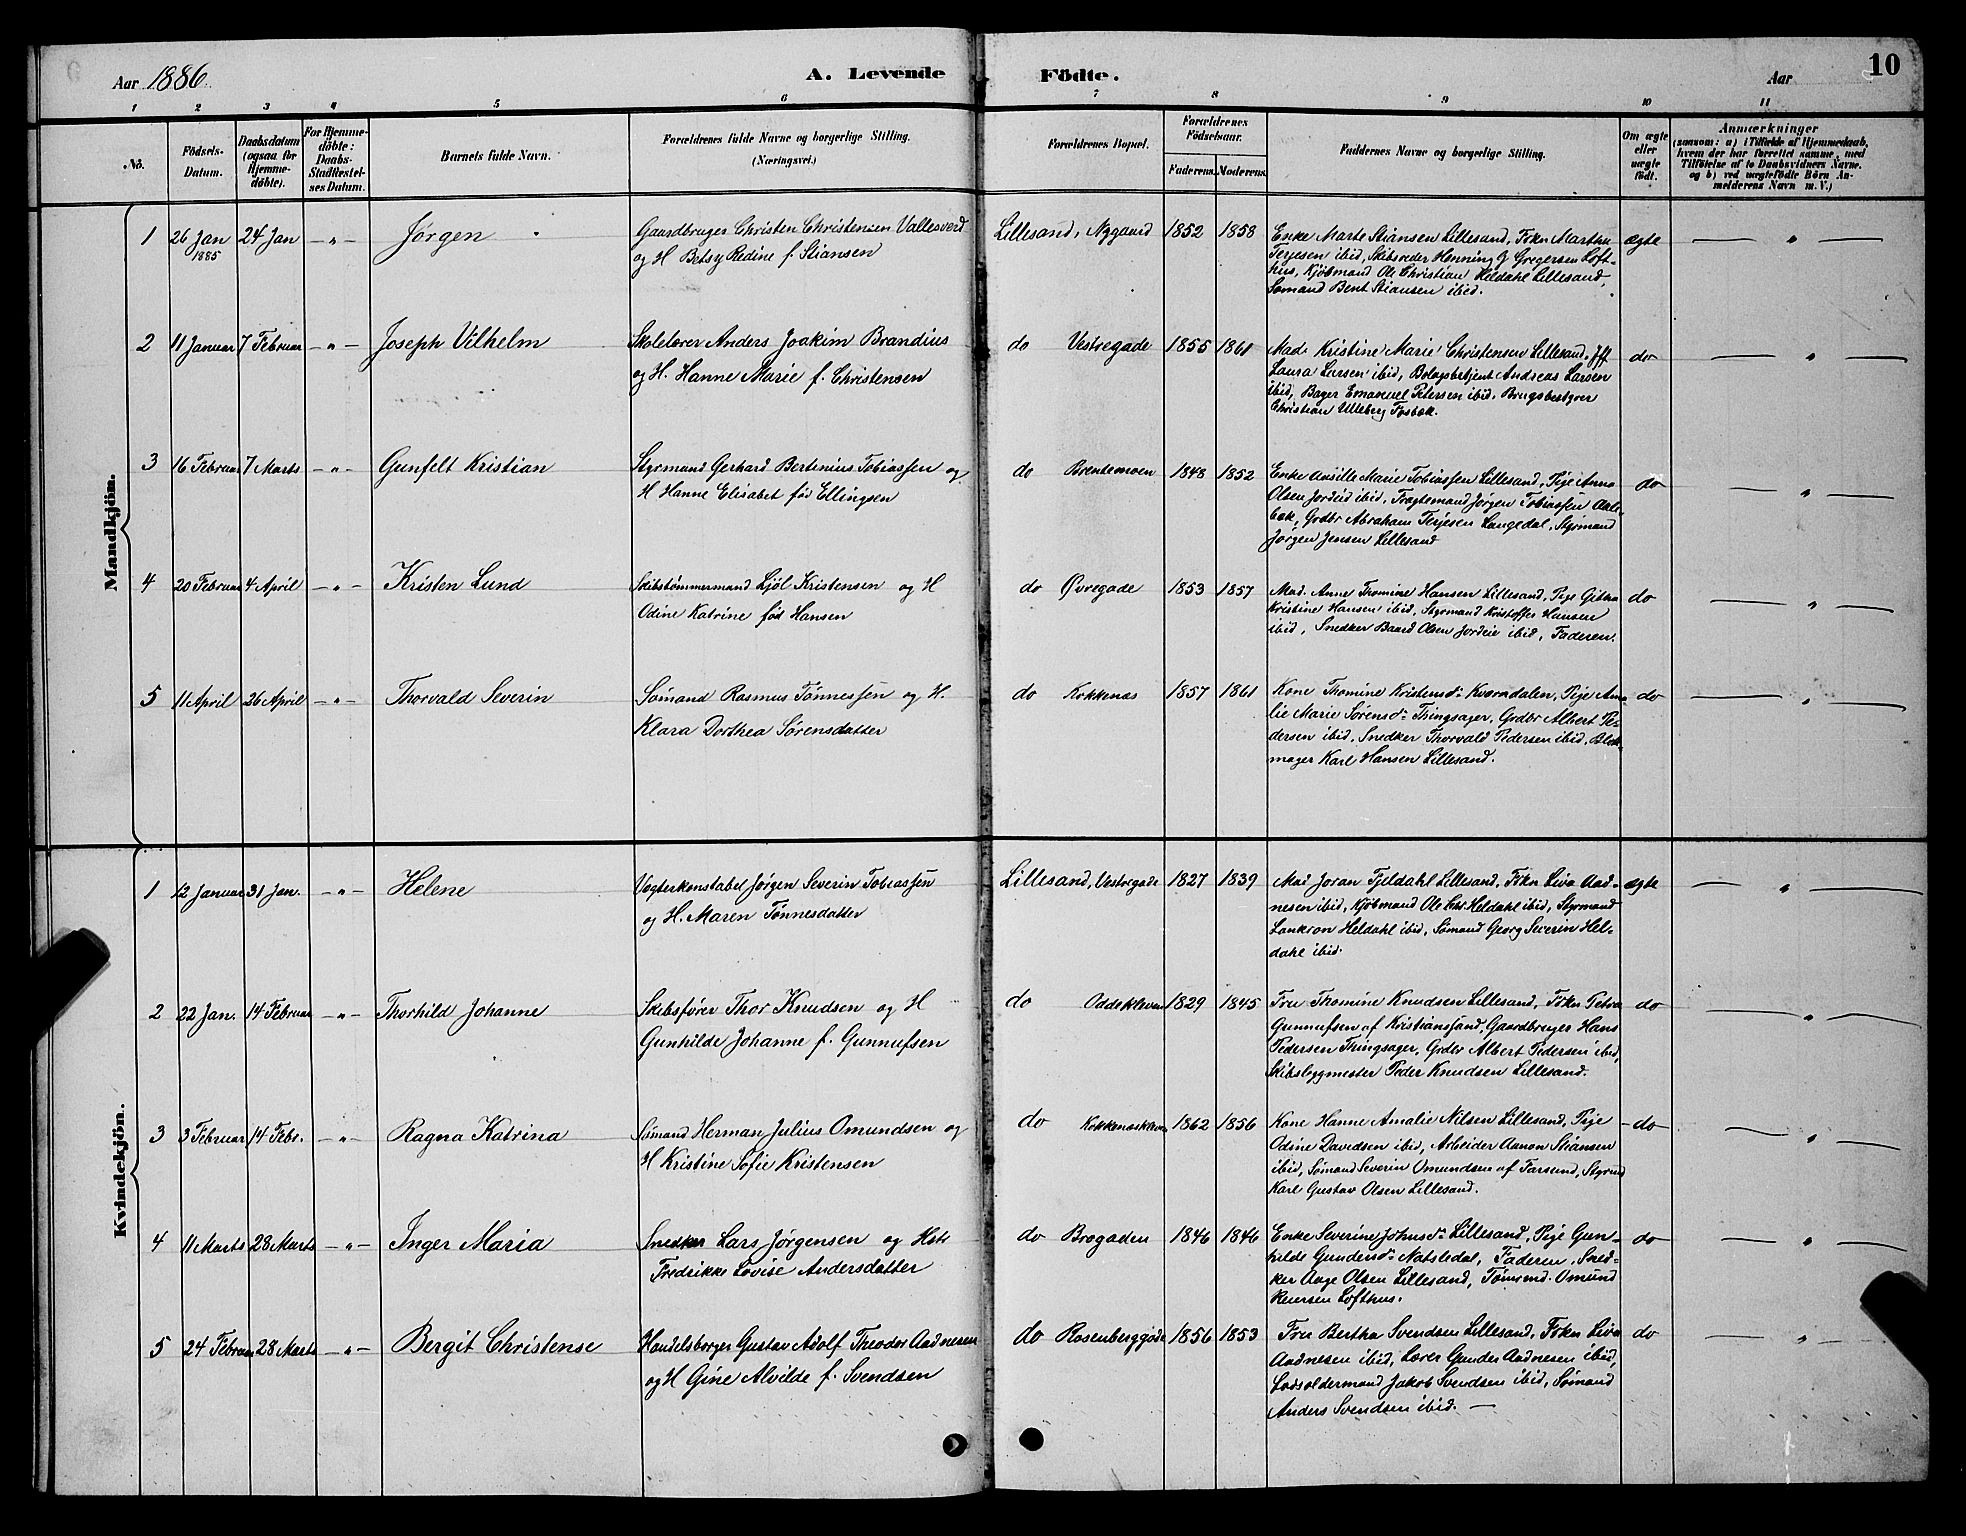 Aar 1886.
A. Levende Födte.
Aar
10
1 2 3 4 5 6 7 8 9 10 11
No.
Födsels-
Datum.
Daabsdatum
(ogsaa for
Hjemme-
döbte).
For Hjemme-
döbte:
Daabs-
Stadfestel-
ses Datum.
Barnets fulde Navn.
Forældrenes fulde Navne og borgerlige Stilling.
(Næringsvei.)
Forældrenes Bopæl.
Forældrenes
Födselsaar.
Faderens. Moderens.
Faddernes Navne og borgerlige Stilling.
Om ægte
eller
uægte
födt.
Anmærkninger
(saasom: a) i Tilfælde af Hjemmedaab,
hvem der har forrettet samme, med
Tilföielse af to Daabsvidners Navne.
og b) ved uægtefödte Börn An-
melderens Navn m. V.)
Mandkjön.
1 26 Jan 1885 24 Jan – „ – Jørgen
Gaardbruger Christen Christensen Vallesverd
og H Betsy Redine f. Stiansen
Lillesand, Nygaard 1852 1858
Enke Marte Stiansen Lillesand, Frkn Martha
Terjesen ibid, Skibsreder Henning G Gregersen Loft-
hus, Kjøbmand Ole Christian Heldahl Lillesand,
Sømand Bent Stiansen ibid.
ægte — „ —
2 11 Januar 7 Februar – „ – Joseph Vilhelm
Skolelærer Anders Joakim Brandius
og H. Hanne Marie f. Christensen
do Vestregade 1855 1861
Mad. Kristine Marie Christensen Lillesand, Jfr
Laura Larsen ibid, Bolagsbetjent Andreas Larsen
ibid, Bager Emanuel Petersen ibid. Brugsbestyrer
Christian Ulleberg Fosbæk.
do — „ —
3 16 Februar 7 Marts – „ – Gunfelt Kristian
Styrmand Gerhard Bertinius Tobiassen og
H Hanne Elisabet fød Ellingsen
do Brentemoen 1848 1852
Enke Ansille Marie Tobiassen Lillesand, Pige Anna
Olsen Jordeid ibid, Fragtemand Jørgen Tobiassen Aale-
bæk, Grdbr Abraham Terjesen Langedal, Styrmand
Jørgen Jensen Lillesand
do — „ —
4 20 Februar 4 April – „ – Kristen Lund
Skibstømmermand Ljöl Kristensen og H
Odine Katrine fød Hansen
do Øvregade 1853 1857
Mad. Anne Thomine Hansen Lillesand, Pige Githa
Kristine Hansen ibid, Styrmand Kristoffer Hansen
ibid, Snedker Baard Olsen Jordeie ibid, Faderen.
do — „ —
5 11 April 26 April – „ – Thorvald Severin
Sømand Rasmus Tønnessen og H.
Klara Dorthea Sørensdatter
do Kokkenæs 1857 1861
Kone Thomine Kristensdr Kværndalen, Pige Ama-
lie Marie Sørensdr Thingsager, Grdbr Albert Pe-
dersen ibid, Snedker Thorvald Pedersen ibid, Blok-
mager Karl Hansen Lillesand.
do — „ —
Kvindekjön.
1 12 Januar 31 Jan. – „ – Helene
Vegterkonstabel Jørgen Severin Tobiassen
og H. Maren Tønnesdatter
Lillesand, Vestregade 1827 1839
Mad Joran Fjeldahl Lillesand, Frkn Liva Aad-
nesen ibid, Kjøbmand Ole Chr. Heldahl ibid, Styrmand
Lankron Heldahl ibid, Sømand Georg Severin Hel-
dahl ibid.
ægte — „ —
2 22 Jan. 14 Februar – „ – Thorhild Johanne
Skibsfører Thor Knudsen og H
Gunhilde Johanne f. Gunnufsen
do Oddekleven 1829 1845
Fru Thomine Knudsen Lillesand, Frkn Petra
Gunnufsen af Kristianssand, Gaardbruger Hans
Pedersen Thingsager, Grdbr Albert Pedersen ibid,
Skibsbygmester Peder Knudsen Lillesand.
do — „ —
3 3 Februar 14 Febr. – „ – Ragna Katrina
Sømand Herman Julius Omundsen og
H Kristine Sofie Kristensen
do Kokkenæskleven 1862 1856
Kone Hanne Amalie Nilsen Lillesand, Pige
Odine Davidsen ibid, Arbeider Aanon Stiansen
ibid, Sømand Severin Omundsen af Farsund, Styrmd
Karl Gustav Olsen Lillesand.
do — „ —
4 11 Marts 28 Marts – „ – Inger Maria
Snedker Lars Jørgensen og Hstr
Fredrikke Lovise Andersdatter
do Brogaden 1846 1846
Enke Severine Johnsdr Lillesand, Pige Gun-
hilde Gundersdr Natsledal, Faderen, Sned-
ker Aage Olsen Lillesand, Tømrmd. Omund
Reiersen Lofthus.
do — „ —
5 24 Februar 28 Marts – „ – Bergit Christense
Handelsborger Gustav Adolf Theodor Aadnesen
og H Gine Alvilde f. Svendsen
do Rosenberggade 1856 1853
Fru Bertha Svendsen Lillesand, Frkn Liva
Aadnesen ibid, Lærer Gunder Aadnesen ibid,
Lodsoldermand Jakob Svendsen ibid, Sømand
Anders Svendsen ibid. —
do — „ —